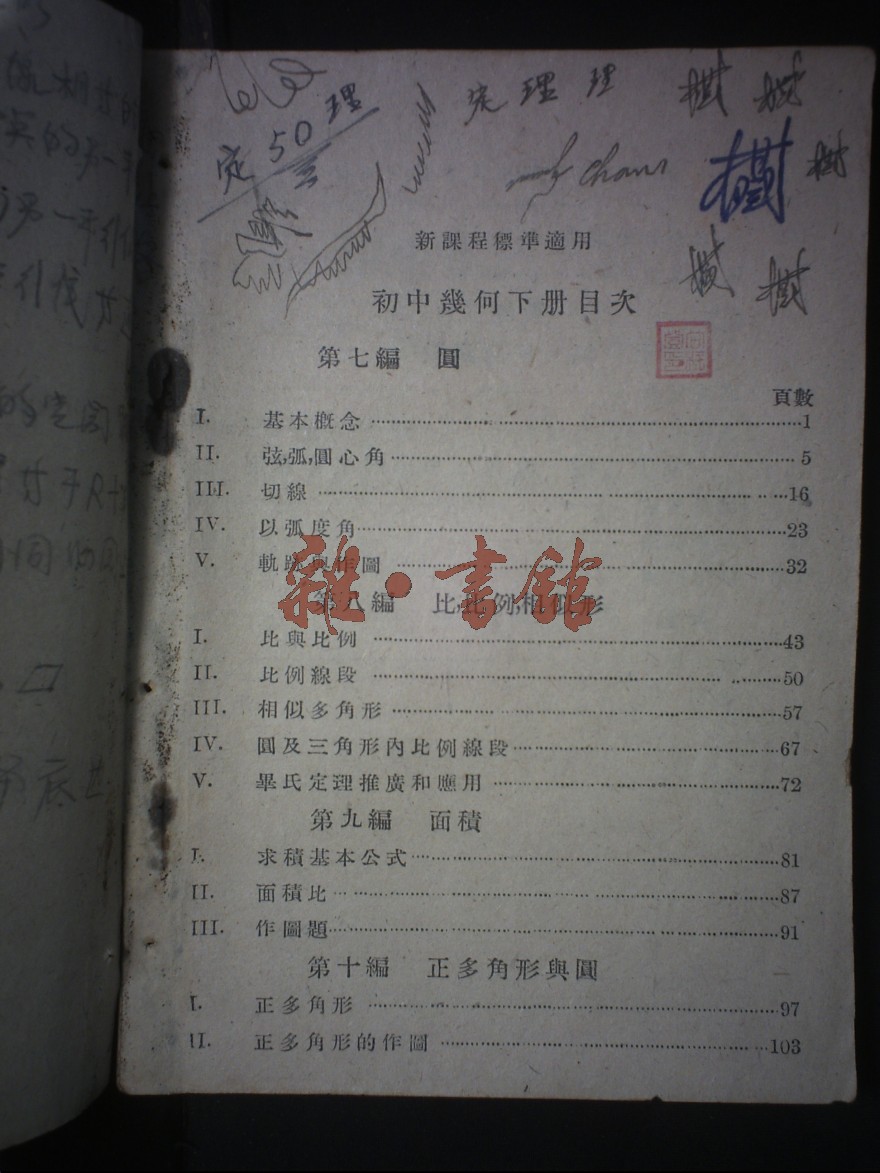 定50理
定理理
樹樹
樹樹
chans
樹樹
新課程標準適用
初中幾何下册目次
第七編 圓
頁數
I. 基本概念 1
II. 弦,弧,圓心角 5
III. 切線 16
IV. 以弧度角 23
V. 軌跡與作圖 32
雜·書館
第八編 比,比例,相似形
I. 比與比例 43
II. 比例線段 50
III. 相似多角形 57
IV. 圓及三角形內比例線段 67
V. 畢氏定理推廣和應用 72
第九編 面積
I. 求積基本公式 81
II. 面積比 87
III. 作圖題 91
第十編 正多角形與圓
I. 正多角形 97
II. 正多角形的作圖 103